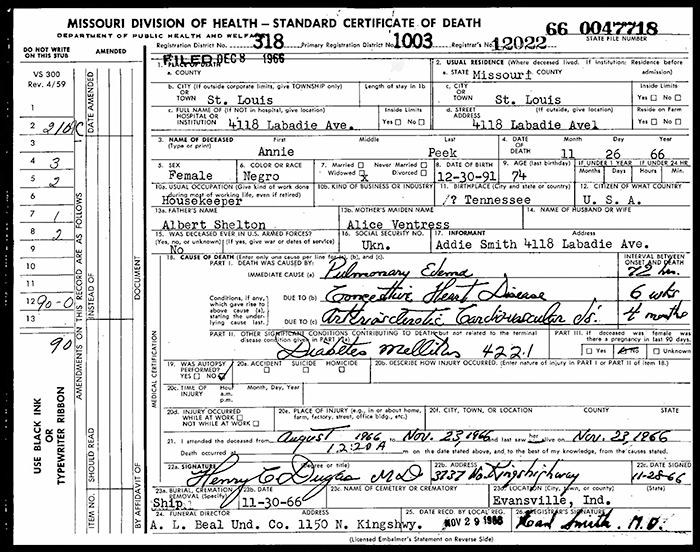 MISSOURI DIVISION OF HEALTH — STANDARD CERTIFICATE OF DEATH
DEPARTMENT OF PUBLIC HEALTH AND WELFARE
66 0047718
STATE FILE NUMBER
Registration District No. 318 Primary Registration District No. 1003 Registrar's No. 12022
FILED DEC 8 1966
DO NOT WRITE ON THIS STUB
AMENDED
VS 300
Rev. 4/59
DATE AMENDED
1
2 210 C
3
4 3
5 2
6
7 1
8 2
9
10
11
12 90-0
13
90
AMENDMENTS ON THIS RECORD ARE AS FOLLOWS
INSTEAD OF
DOCUMENT
USE BLACK INK
OR
TYPEWRITER RIBBON
ITEM NO.
SHOULD READ
BY AFFIDAVIT OF
MEDICAL CERTIFICATION
1. PLACE OF DEATH
a. COUNTY
2. USUAL RESIDENCE (Where deceased lived. If institution: Residence before admission)
a. STATE Missouri COUNTY
b. CITY (If outside corporate limits, give TOWNSHIP only)
OR
TOWN St. Louis
Length of stay in 1b
c. CITY
OR
TOWN St. Louis
Inside Limits
Yes □ No □
c. FULL NAME OF (If not in hospital, give location)
HOSPITAL OR
INSTITUTION 4118 Labadie Ave.
Inside Limits
Yes □ No □
d. STREET (If outside, give location)
ADDRESS 4118 Labadie Ave
Reside on Farm
Yes □ No □
3. NAME OF DECEASED First Middle Last
(Type or print) Annie Peek
4. DATE OF DEATH Month Day Year
11 26 66
5. SEX
Female
6. COLOR OR RACE
Negro
7. Married □ Never Married □
Widowed x Divorced □
8. DATE OF BIRTH
12-30-91
9. AGE (last birthday)
74
IF UNDER 1 YEAR
Months Days
IF UNDER 24 HR.
Hours Min.
10a. USUAL OCCUPATION (Give kind of work done during most of working life, even if retired)
Housekeeper
10b. KIND OF BUSINESS OR INDUSTRY
11. BIRTHPLACE (City and state or country)
/? Tennessee
12. CITIZEN OF WHAT COUNTRY
U. S. A.
13a. FATHER'S NAME
Albert Shelton
13b. MOTHER'S MAIDEN NAME
Alice Ventress
14. NAME OF HUSBAND OR WIFE
15. WAS DECEASED EVER IN U.S. ARMED FORCES?
(Yes, no, or unknown) (If yes, give war or dates of service)
No
16. SOCIAL SECURITY NO.
Ukn.
17. INFORMANT Address
Addie Smith 4118 Labadie Ave.
18. CAUSE OF DEATH (Enter only one cause per line for (a), (b), and (c).)
PART I. DEATH WAS CAUSED BY:
INTERVAL BETWEEN ONSET AND DEATH
IMMEDIATE CAUSE (a) Pulmonary Edema 72 hrs.
Conditions, if any, which gave rise to above cause (a), stating the underlying cause last.
DUE TO (b) Congestive Heart Disease 6 wks
DUE TO (c) Arteriosclerotic Cardiovascular ds. 4 months
PART II. OTHER SIGNIFICANT CONDITIONS CONTRIBUTING TO DEATH but not related to the terminal disease condition given in PART I(a)
Diabetes Mellitus 422.1
PART III. If deceased was female was there a pregnancy in last 90 days.
□ Yes □ No □ Unknown
19. WAS AUTOPSY PERFORMED?
YES □ NO
20a. ACCIDENT SUICIDE HOMICIDE
□ □ □
20b. DESCRIBE HOW INJURY OCCURRED. (Enter nature of injury in PART I or PART II of item 18.)
20c. TIME OF INJURY Hour a.m. p.m. Month, Day, Year
20d. INJURY OCCURRED
WHILE AT WORK □
NOT WHILE AT WORK □
20e. PLACE OF INJURY (e.g., in or about home, farm, factory, street, office bldg., etc.)
20f. CITY, TOWN, OR LOCATION COUNTY STATE
21. I attended the deceased from August 1966 to Nov. 23, 1966 and last saw her alive on Nov. 23, 1966
Death occurred at 12:20A m on the date stated above, and to the best of my knowledge, from the causes stated.
22a. SIGNATURE (Degree or title)
Henry C. M.D.
22b. ADDRESS
3737 No. Kingshighway
22c. DATE SIGNED
11-28-66
23a. BURIAL, CREMATION, REMOVAL (Specify)
Ship
23b. DATE
11-30-66
23c. NAME OF CEMETERY OR CREMATORY
23d. LOCATION (City, town, or county) (State)
Evansville, Ind.
24. FUNERAL DIRECTOR ADDRESS
A. L. Beal Und. Co. 1150 N. Kingshwy.
25. DATE RECD. BY LOCAL REG.
NOV 29 1966
26. REGISTRAR'S SIGNATURE
Smith. M.D.
(Licensed Embalmer's Statement on Reverse Side)